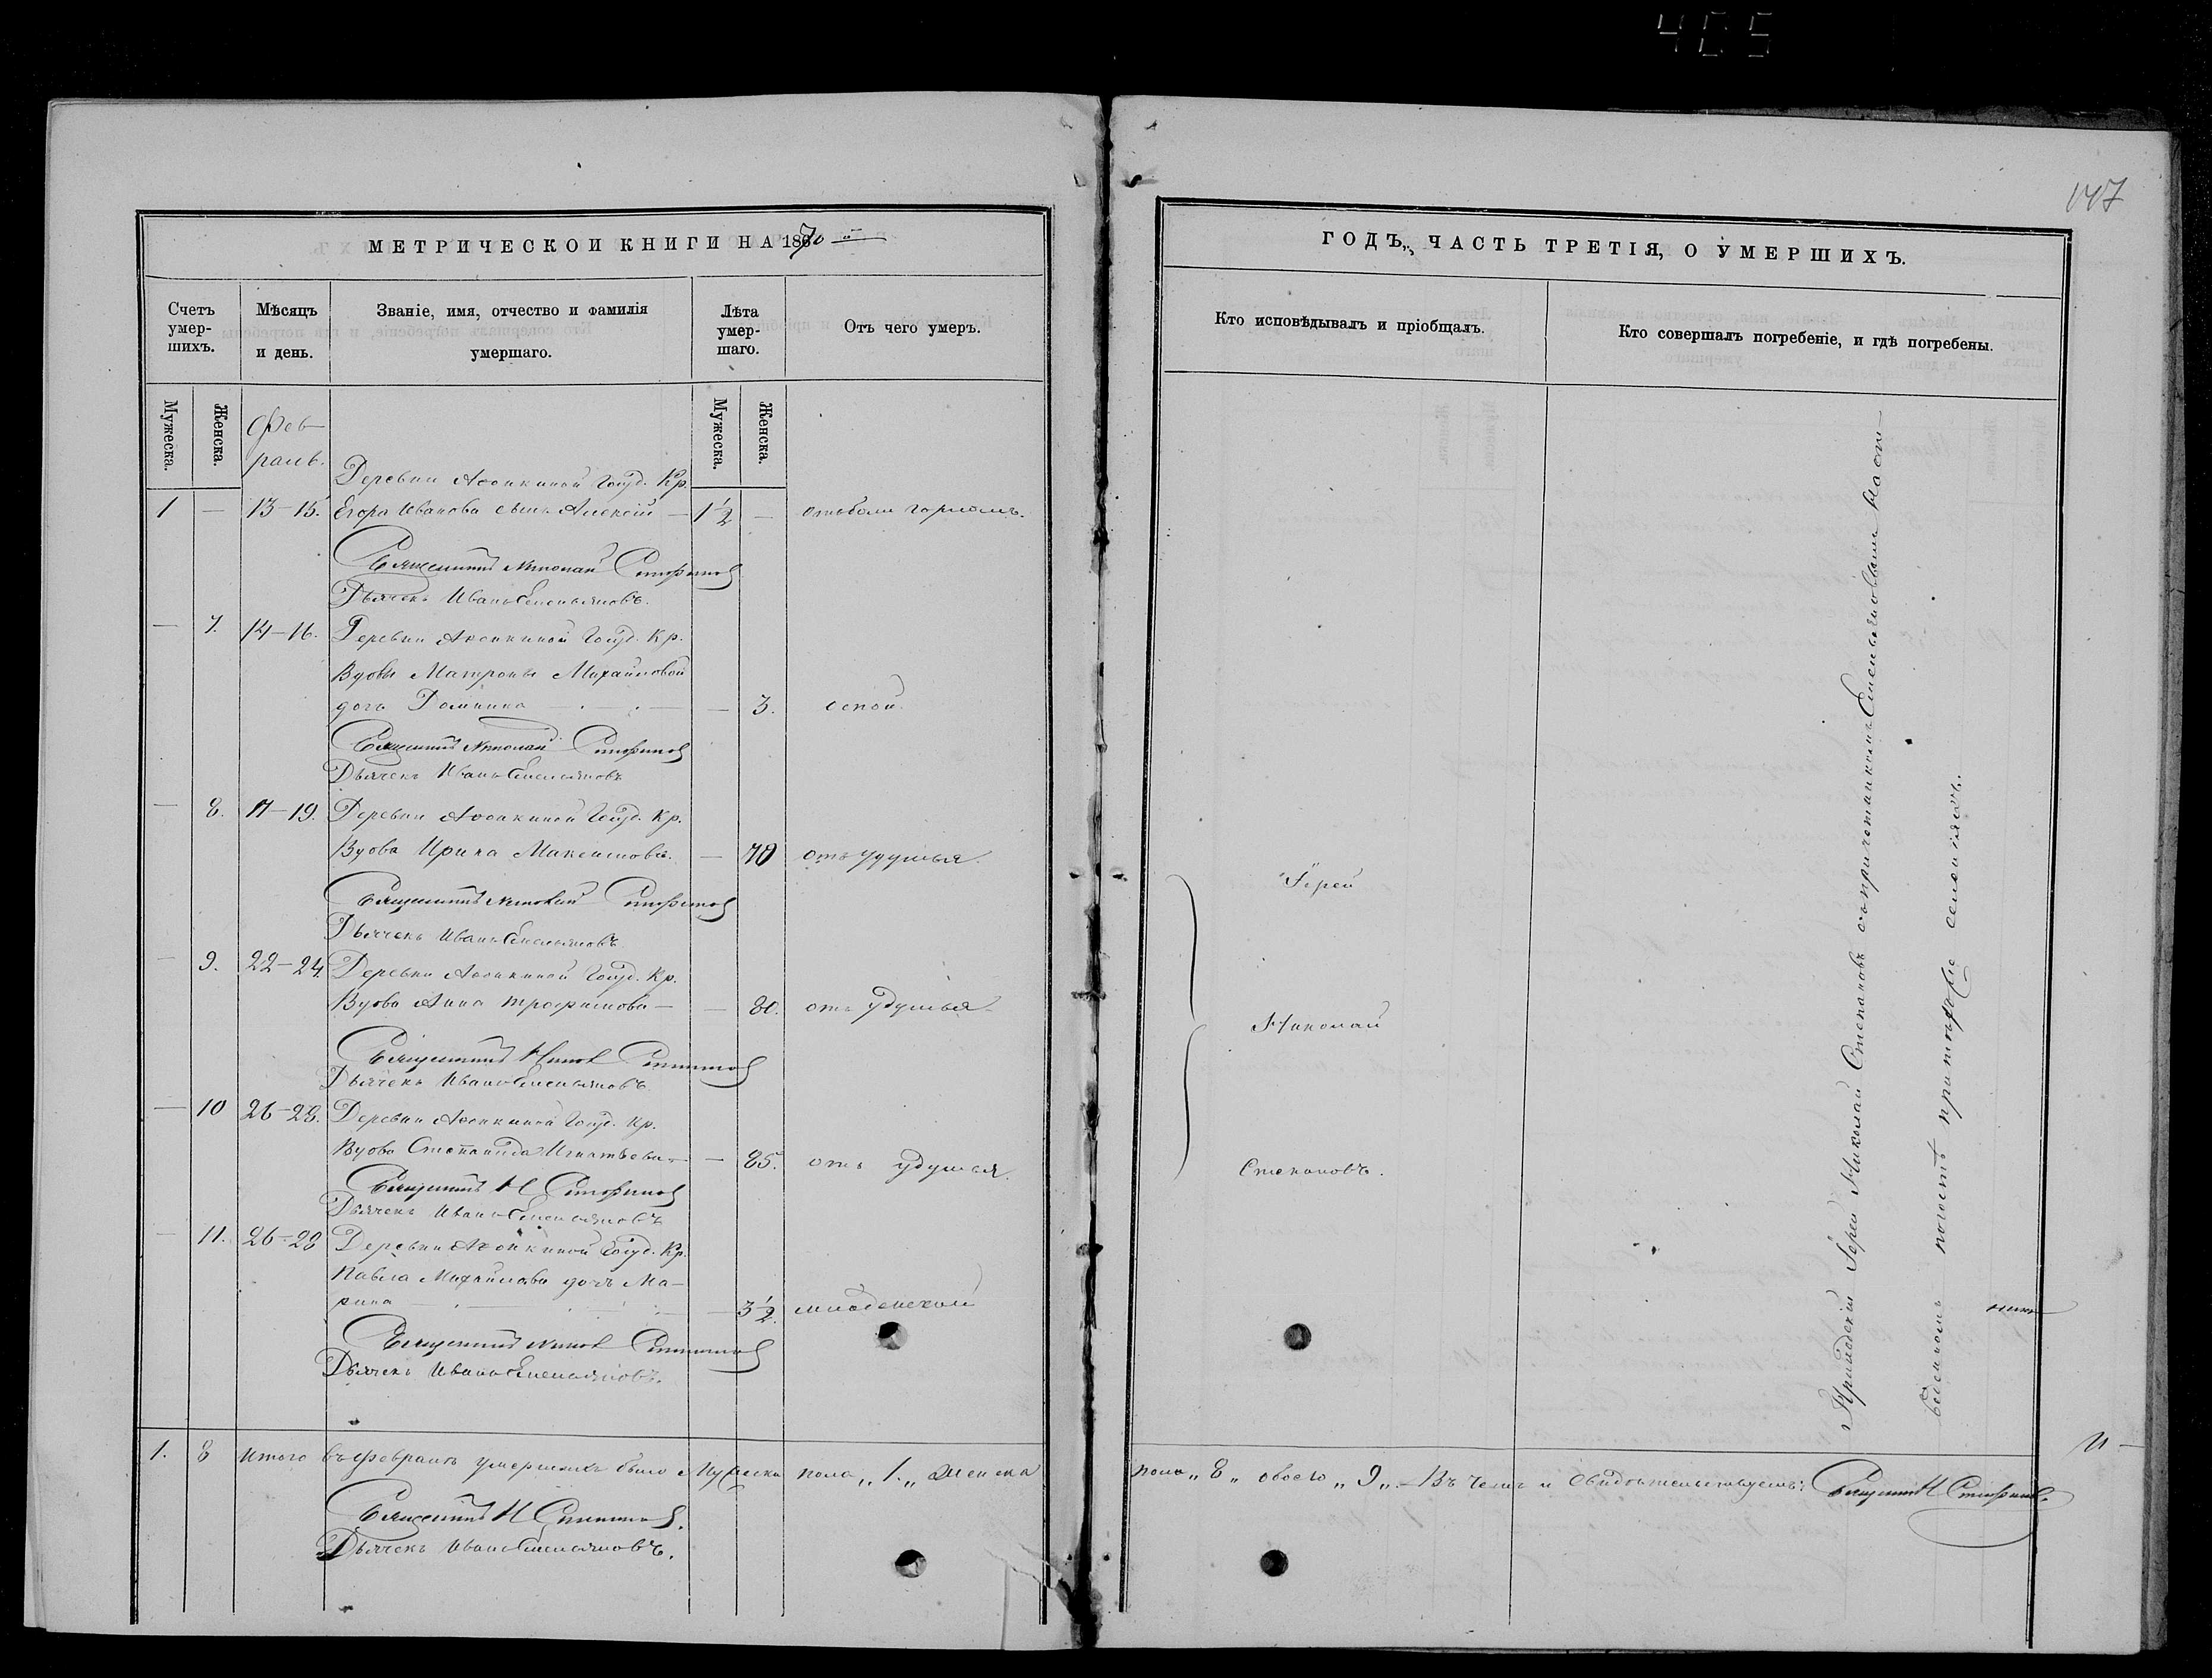 405
147
МЕТРИЧЕСКОЙ КНИГИ НА 1870
ГОДЪ, ЧАСТЬ ТРЕТІЯ, О УМЕРШИХЪ.
Счетъ умер-шихъ.
Мѣсяцъ и день.
Званіе, имя, отчество и фамилія умершаго.
Лѣта умер-шаго.
Отъ чего умеръ.
Кто исповѣдывалъ и пріобщалъ.
Кто совершалъ погребеніе, и гдѣ погребены.
Мужеска.
Женска.
Мужеска.
Женска.
Фев-
раль.
Деревни Аѳонкиной Госуд. Кр.
1 — 13–15. Егора Иванова сынъ Алексій — 1½ — отъ боли горломъ.
Священникъ Николай Стефановъ
Дьячекъ Иванъ Емельяновъ.
— 7. 14–16. Деревни Аѳонкиной Госуд. Кр.
Вдовы Матроны Михайловой
дочь Домника — — 3. оспой.
Священникъ Николай Стефановъ
Дьячекъ Иванъ Емельяновъ
— 8. 17–19. Деревни Аѳонкиной Госуд. Кр.
Вдова Ирина Максимова. — 70 отъ удушья.
Священникъ Николай Стефановъ
Дьячекъ Иванъ Емельяновъ
— 9. 22–24. Деревни Аѳонкиной Госуд. Кр.
Вдова Анна Трофимова — — 80. отъ удушья.
Священникъ Никол Стефановъ
Дьячекъ Иванъ Емельяновъ
— 10 26–28. Деревни Аѳонкиной Госуд. Кр.
Вдова Степанида Игнатьева — — 85. отъ удушья.
Священникъ Н Стефановъ
Дьячекъ Иванъ Емельяновъ
— 11. 26–28 Деревни Аѳонкиной Госуд. Кр.
Павла Михайлова дочь Ма-
рина — — 3½ младенской
Священникъ Никол Стефановъ
Дьячекъ Иванъ Емельяновъ.
Іерей
Николай
Степановъ.
Приходскій Іерей Николай Степановъ съ причетникомъ Емельяновымъ на
погостѣ
1. 8 Итого въ февралѣ умершихъ было мужеска пола „1„ женска
пола „8„ обоего „9„. — Въ чемъ и свидѣтельствуемъ: Священникъ Н Стефановъ.
Священникъ Н Стефановъ.
Дьячекъ Иванъ Емельяновъ.